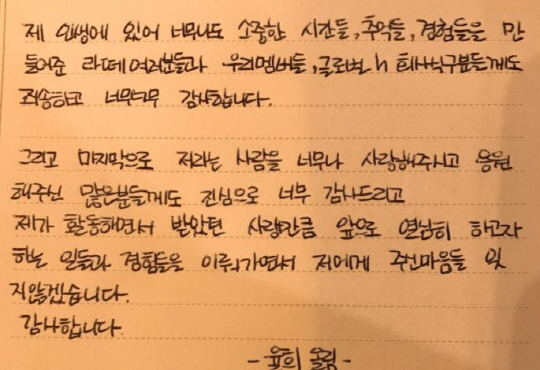 제 인생에 있어 너무나도 소중한 시간들, 추억들, 경험들을 만
들어준 라떼여러분들과 우리멤버들, 글로벌h 회사식구분들께도
죄송하고 너무너무 감사합니다.
그리고 마지막으로 저라는 사람을 너무나 사랑해주시고 응원
해주신 많은분들께도 진심으로 너무 감사드리고
제가 활동하면서 받았던 사랑만큼 앞으로 열심히 하고자
하는 일들과 경험들을 이뤄가면서 저에게 주신마음들 잊
지않겠습니다.
감사합니다.
- 율희 올림 -